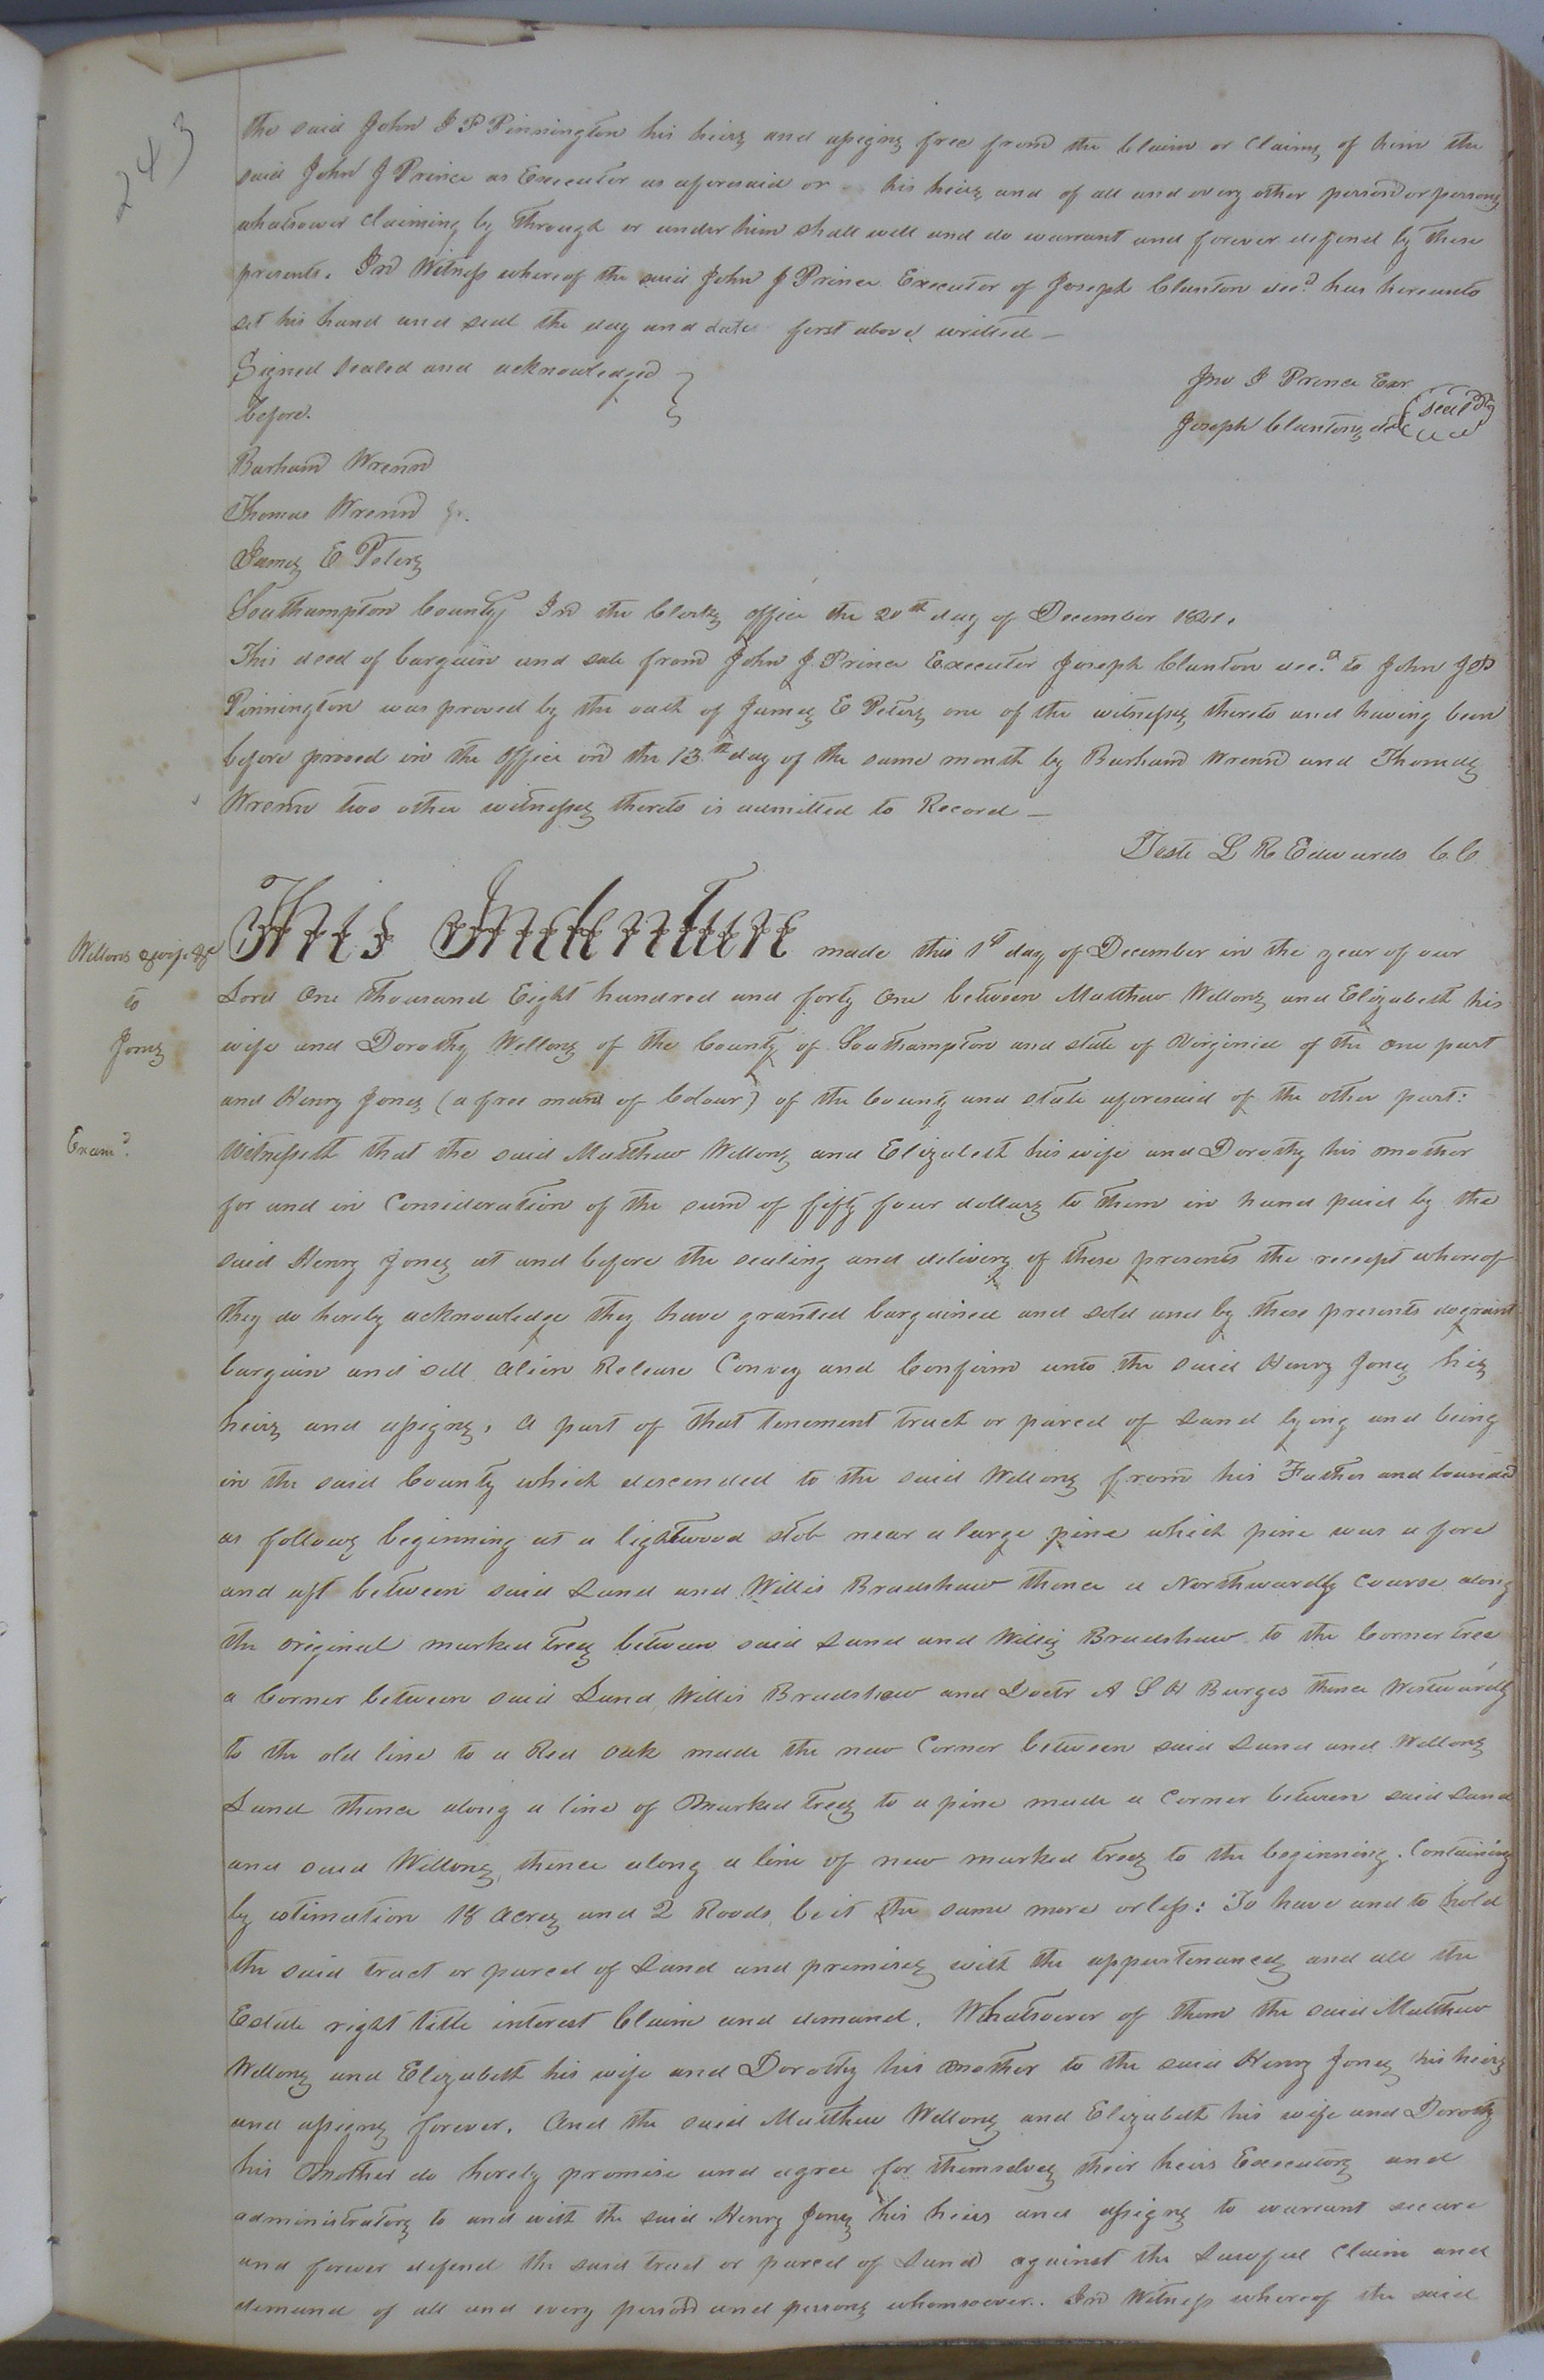 243
the said John J P Pinnington his heirs and assigns free from the Claim or Claims of him the
said John J Prince as Executor as aforesaid or his heirs and of all and every other person or persons
whatsoever Claiming by through or under him shall will and do warrant and forever defend by these
presents. In Witness whereof the said John J Prince Executor of Joseph Clanton decd has hereunto
set his hand and seal the day and date first above written —
Signed sealed and acknowledged
before.
Jno J Prince Exor
Joseph Clantons decd seal
Barham Wrenn
Thomas Wrenn Jr.
James E Peters
Southampton County In the Clerks office the 20th day of December 1841.
This deed of bargain and sale from John J. Prince Executor Joseph Clanton decd to John J P
Pinnington was proved by the oath of James E Peters one of the witnesses thereto and having been
before proved in the office on the 13th day of the same month by Barham Wrenn and Thomas
Wrenn two other witnesses thereto is admitted to Record —
Teste L R Edwards C.C
Wellons & wife &c
to
Jones
Examd
This Indenture made this 1st day of December in the year of our
Lord One thousand Eight hundred and forty One between Matthew Wellons and Elizabeth his
wife and Dorothy Wellons of the County of Southampton and state of Virginia of the one part
and Henry Jones (a free man of Colour) of the County and state aforesaid of the other part:
Witnesseth that the said Matthew Wellons and Elizabeth his wife and Dorothy his mother
for and in Consideration of the sum of fifty four dollars to them in hand paid by the
said Henry Jones at and before the sealing and delivery of these presents the receipt whereof
they do hereby acknowledge they have granted bargained and sold and by these presents do grant
bargain and sell alien Release Convey and Confirm unto the said Henry Jones his
heirs and assigns, a part of that tenement tract or parcel of Land lying and being
in the said County which descended to the said Wellons from his Father and bounded
as follows beginning at a lightwood stob near a large pine which pine was a fore
and aft between said Land and Willis Bradshaw thence a Northwardly Course along
the original marked trees between said Land and Willis Bradshaw to the Corner tree
a Corner between said Land, Willis Bradshaw and Doctr A S H Burges thence Westwardly
to the old line to a Red oak made the new Corner between said Land and Wellons
Land thence along a line of Marked trees to a pine made a Corner between said Land
and said Wellons, thence along a line of new marked trees to the beginning. Containing
by estimation 18 Acres and 2 Roods, be it the same more or less: To have and to hold
the said tract or parcel of Land and premises with the appurtenances and all the
Estate right title interest Claim and demand. Whatsoever of them the said Matthew
Wellons and Elizabeth his wife and Dorothy his mother to the said Henry Jones his heirs
and assigns forever. And the said Matthew Wellons and Elizabeth his wife and Dorothy
his Mother do hereby promise and agree for themselves their heirs Executors and
administrators to and with the said Henry Jones his heirs and assigns to warrant secure
and forever defend the said tract or parcel of Land against the Lawful Claim and
demand of all and every person and persons whomsoever. In Witness whereof the said